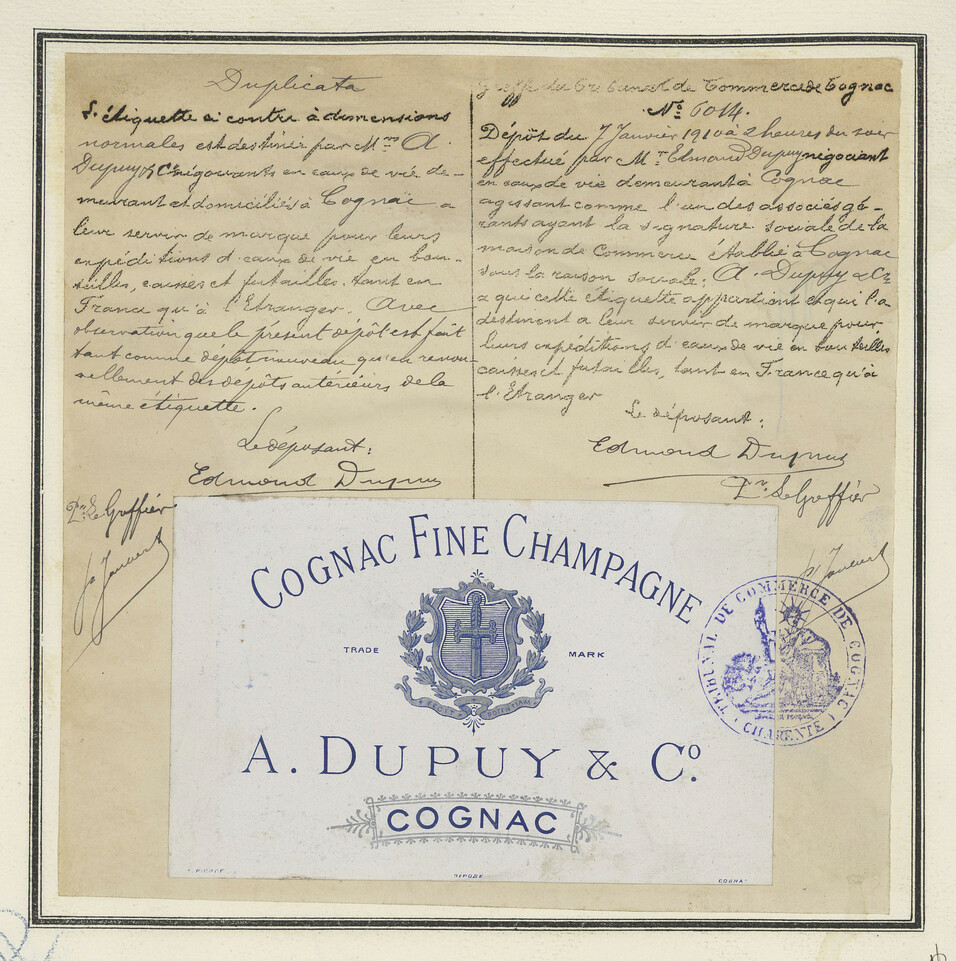 Duplicata
L'étiquette ci contre à dimensions
normales est destinée par M.rs A.
Dupuy & Cie négociants en eaux de vie de-
meurant et domiciliés à Cognac a
leur servir de marque pour leurs
expéditions d'eaux de vie en bou-
teilles, caisses et futailles, tant en
France qu'à l'Etranger. Avec
observation que le présent dépôt est fait
tant comme dépôt nouveau qu'en renou-
vellement des dépôts antérieurs de la
même étiquette.
Le déposant:
Edmond Dupuy
Pr. Le Greffier
Greffe du Tribunal de Commerce de Cognac
No. 6014.
Dépôt du 7 Janvier 1910 à 2 heures du soir
effectué par Mr. Edmond Dupuy négociant
en eaux de vie demeurant à Cognac
agissant comme l'un des associés gé-
rants ayant la signature sociale de la
maison de Commerce établie à Cognac
sous la raison sociale: A. Dupuy & Cie
a qui cette étiquette appartient et qui l'a
destinent a leur servir de marque pour
leurs expéditions d'eaux de vie en bouteilles
caisses et futailles, tant en France qu'à
l'Etranger
Le déposant:
Edmond Dupuy
Pr. Le Greffier
COGNAC FINE CHAMPAGNE
TRADE MARK
A. DUPUY & Co.
COGNAC
DÉPOSÉ
COGNAC
TRIBUNAL DE COMMERCE DE COGNAC
CHARENTE